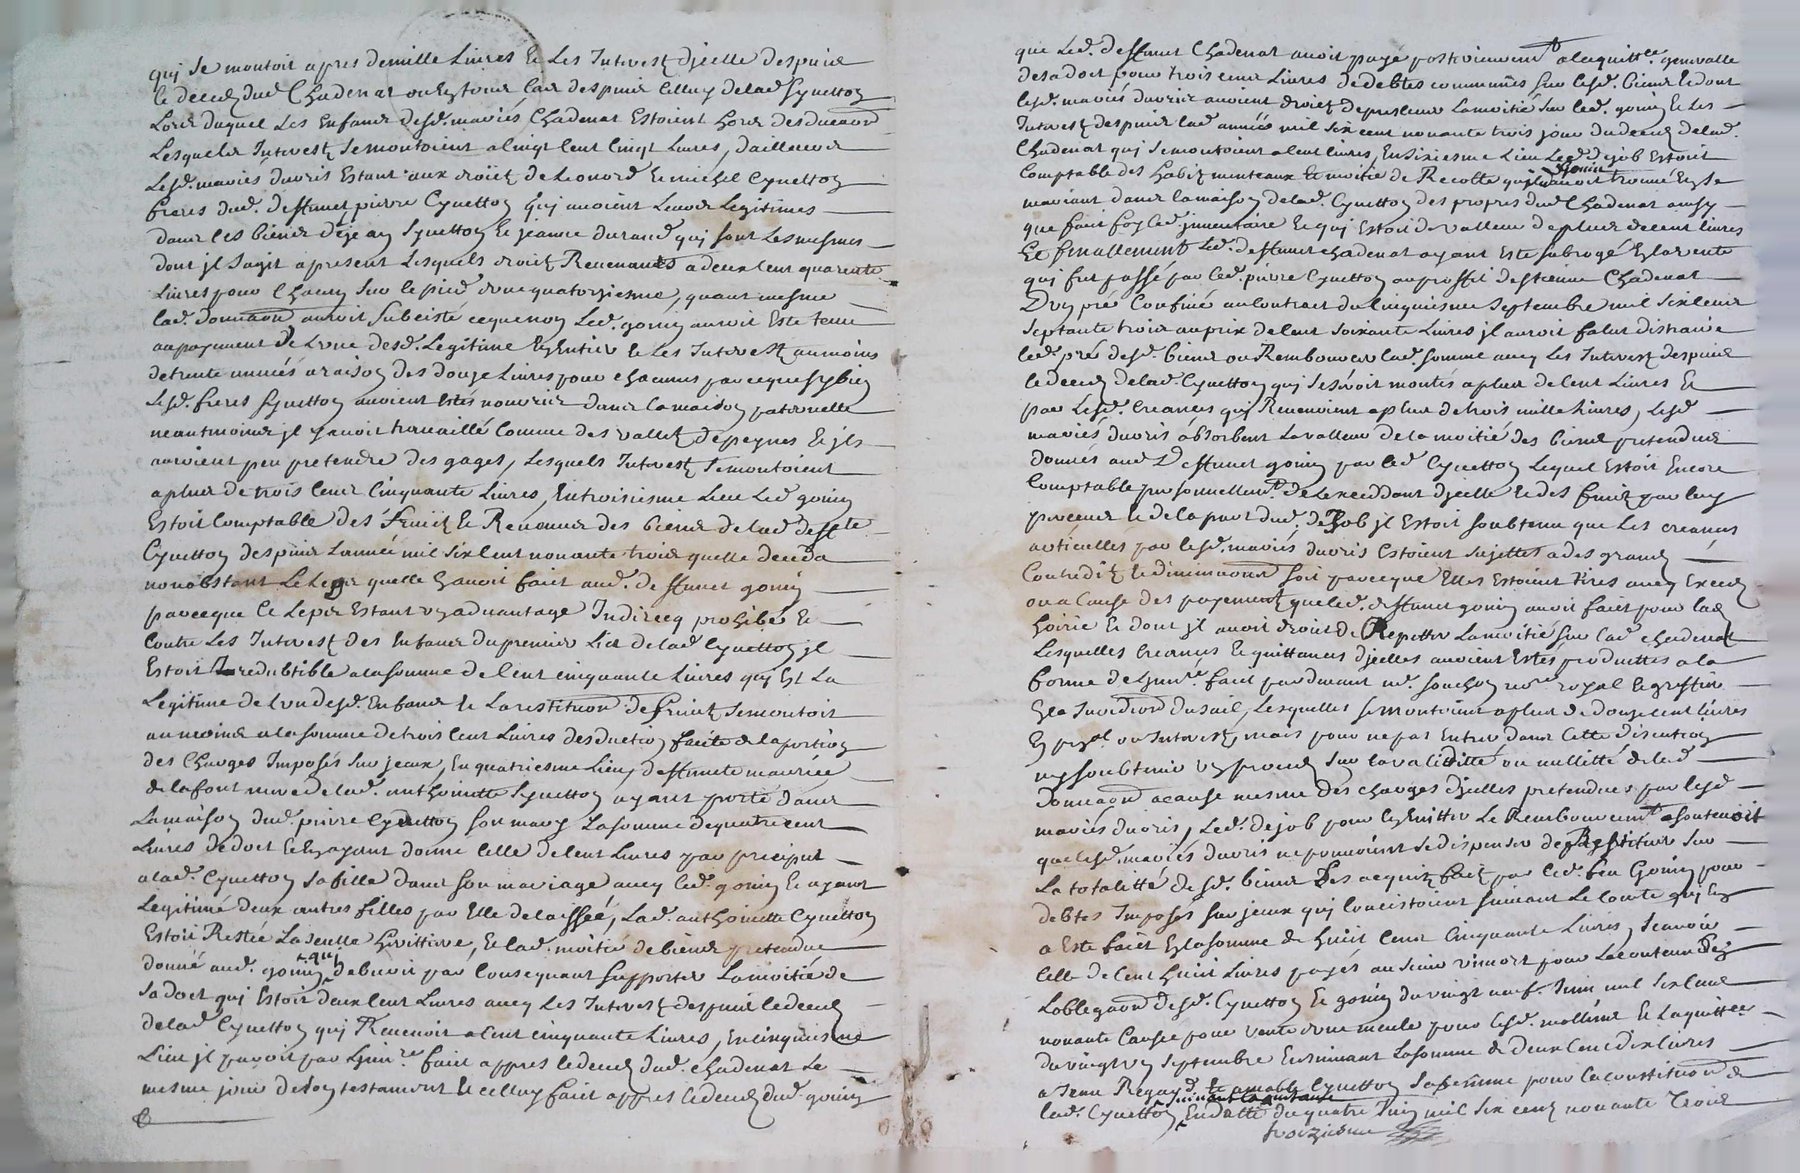 qui se montoit apres demille Livres Et Les Interest d'jcelle despuis
le deced dud Chadenat ou Extour lad despuis Celluy delad Cynetton
Lors duquel Les Enfans desd. mariés Chadenat Estoient hors
Lesquels Interest Semontoient a Cent Livres, dailleurs
Lesd. mariés duvris Estant aux droict de Leonord Et michel Cynetton
freres dud. deffunct pierre Cynetton qui avoient Leurs Legitimes
dans les biens dejean Cynetton Et jeanne durand qui sont Lesmesmes
dont jl Sagit apresent Lesquels droict Revenants a deux Cent quarente
Livres pour Chacun Sur le pied dune quatorziesme, quant mesme
lad. donnaõn auroit Subcisté cequenon Led. gonin auroit Este tenu
aupayement de Lune desd. Legitime En Entier Et Les Interest aumoins
detrente années araison des douze Livres pour chacune parceque sy bien
Lesd. freres Cynetton avoient Estés nourris dans lamaison paternelle
neantmoins jl y avoit travaillé Comme des vallet Et jls
auroient peu pretendre des gages, Lesquels Interest Semontoient
a plus de trois Cent Cinquante Livres, Entroisiesme Lieu Led gonin
Estoit Comptable des fruict Et Revenus des biens delad deffte
Cynetton despuis Lannée mil Six Cent nonante trois quelle deceda
nonobstant Le Legs quelle Luy avoit faict aud. deffunct gonin
parceque Ce Legs Estant un advantage Indirecq prohibé Et
Contre Les Interest des Enfans dupremier Lict delad Cynetton jl
Estoit Reductible alasomme de Cent cinquante Livres qui Est La
Legitime de Lun desd. Enfans Et La restitution de fruict Semontoit
aumoins alasomme detrois Cent Livres desduction faicte delaportion
des Charges Imposés Sur jceux, En quatriesme Lieu deffuncte mauricie
delafont mere delad. anthoinette Cynetton ayant porté dans
Lamaison dud. pierre Cynetton Son mary Lasomme dequatrecent
Livres dedoct Et Luy ayant donné Celle de Cent Livres par preciput
alad. Cynetton Safille dans Son mariage avec Led. gonin Et ayant
Legitimé deux autres filles par Elle delaissée, Lad. anthoinette Cynetton
Estoit Restée Laseulle heritiere, Et lad. moitié debiens pretendue
donné aud. gonin qui debvoit par Consequant Supporter Lamoitié de
Sa doct qui Estoit deuxCent Livres avec Les Interest despuis ledeced
delad Cynetton qui Revenoit a Cent cinquante Livres, En cinquiesme
Lieu jl paroit par Linvre faict appres ledeced dud. chadenat Le
mesme jour deson testament Et Celluy faict appres ledeced dud. gonin
que Led. deffunct Chadenat avoit payé a
desadoct pour trois Cent Livres dedebtes communes Sur lesd. biens Et dont
lesd. mariés duvris avoient droict deprelever Lamoitié Sur led. gonin Et Les
Interest despuis lad année mil Six cent nonante trois jour dudeced delad.
Chadenat qui Semontoient a Cent livres, En Sixiesme Lieu Led. dejob Estoit
Comptable des habit manteaux Et moitié de Recolte Gonin trouvé En Se
mariant dans lamaison delad. Cynetton des propres dud Chadenat ainsy
que faict foy led. jnventaire Et qui Estoit devalleur deplus decent livres
Et finallement Led. deffunct chadenat ayant Esté subrogé En lavente
qui fut passé par led. pierre Cynetton auproffit destienne Chadenat
Dun pré Confiné aucontract du Cinquiesme Septembre mil Six Cent
Septante trois auprix deCent Soixante Livres jl auroit falut distraire
led. pré desd. biens ou Rembourcer lad. Somme avec Les Interest despuis
ledeced delad. Cynetton qui Seseroit montés a plus deCent Livres Et
par Lesd. Creances qui Revenoient a plus detrois mille Livres, Lesd
mariés duvris absorbent La valleur delamoitié des biens pretendus
donnés aud deffunct gonin par led Cynetton Lequel Estoit Encore
Comptable personnellemt. de Lexceddant djcelle Et des fruict par luy
perceus Et delapart dud. deJob jl Estoit Soubtenu que Les creances
articulles par lesd. mariés duvris Estoient Sujettes a des grands
Contredit Et diminuaõn Soit parceque Elles Estoient tirés avec Exces
ou a Cause des payement que led. deffunct gonin avoit faict pour lad
hoirie Et dont jl avoit droict de Repetter Lamoitié Sur lad chadenat
Lesquelles Creances Et quittances djcelles avoient Estés produittes a la
forme de Linvre. faict pardevant me. Souchon nore royal Et greffier
En la Juridiction dusail, Lesquelles Semontoient a plus de douze cent Livres
En ppal ou Interest, mais pour nepas Entrer dans Cette discution
ny Soubtenir un proces Sur lavaliditté ou nullitté delad
donnaõn acause mesme des charges djcelles pretendues par lesd
mariés duvris, Led. dejob pour Le Rembourcemt. a Soutenoit
que lesd. mariés duvris nepouvoient Sedispenser de Restituer Sur
La totalitté desd. biens Les acquit faict par led. feu Gonin pour
debtes Imposés Sur jceux qui Concistoient Suivant Le Conte qui En
a Esté faict En lasomme de huict Cent Cinquante Livres, Scavoir
Celle de Cent huict Livres payés au Sieur pour Lecontenu En
Lobligaõn desd. Cynetton Et gonin du vingt neuf Juin mil Six Cent
nonante Causée pour vente dune meule pour lesd. Et Laquittce
du vingt un Septembre Ensuivant Lasomme de deux Cent dix livres
a Jean Regaud Et amable Cynetton Safemme pour laconstitution de
lad. Cynetton Suivant la quitance En datte du quatre Juin mil Six cent nonante Trois
troizieme